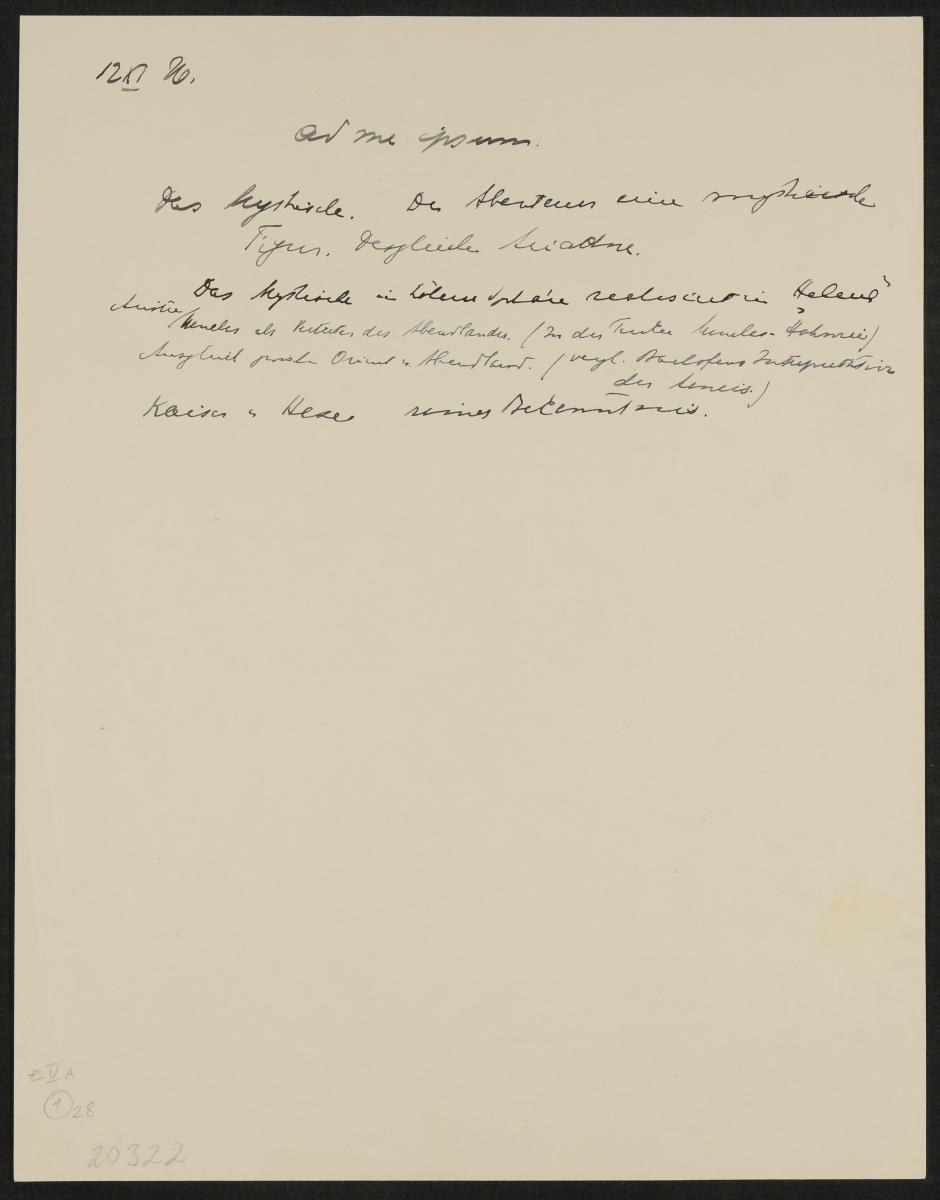 12 XI 26.
ad me ipsum.
Das Mystische. Der Abenteurer eine mystische
Figur. Desgleichen Ariadne.
Das Mystische in höherer Sphäre realisiert in „Helena"
Menelas als Vertreter des Abendlandes. (In der Menelas = Hahnrei)
Ausgleich zwischen Orient u. Abendland. (vergl. Bachofens Interpretation
der Aeneis.)
Kaiser u Hexe reines Bekenntnis.
E V A
1 28
20322